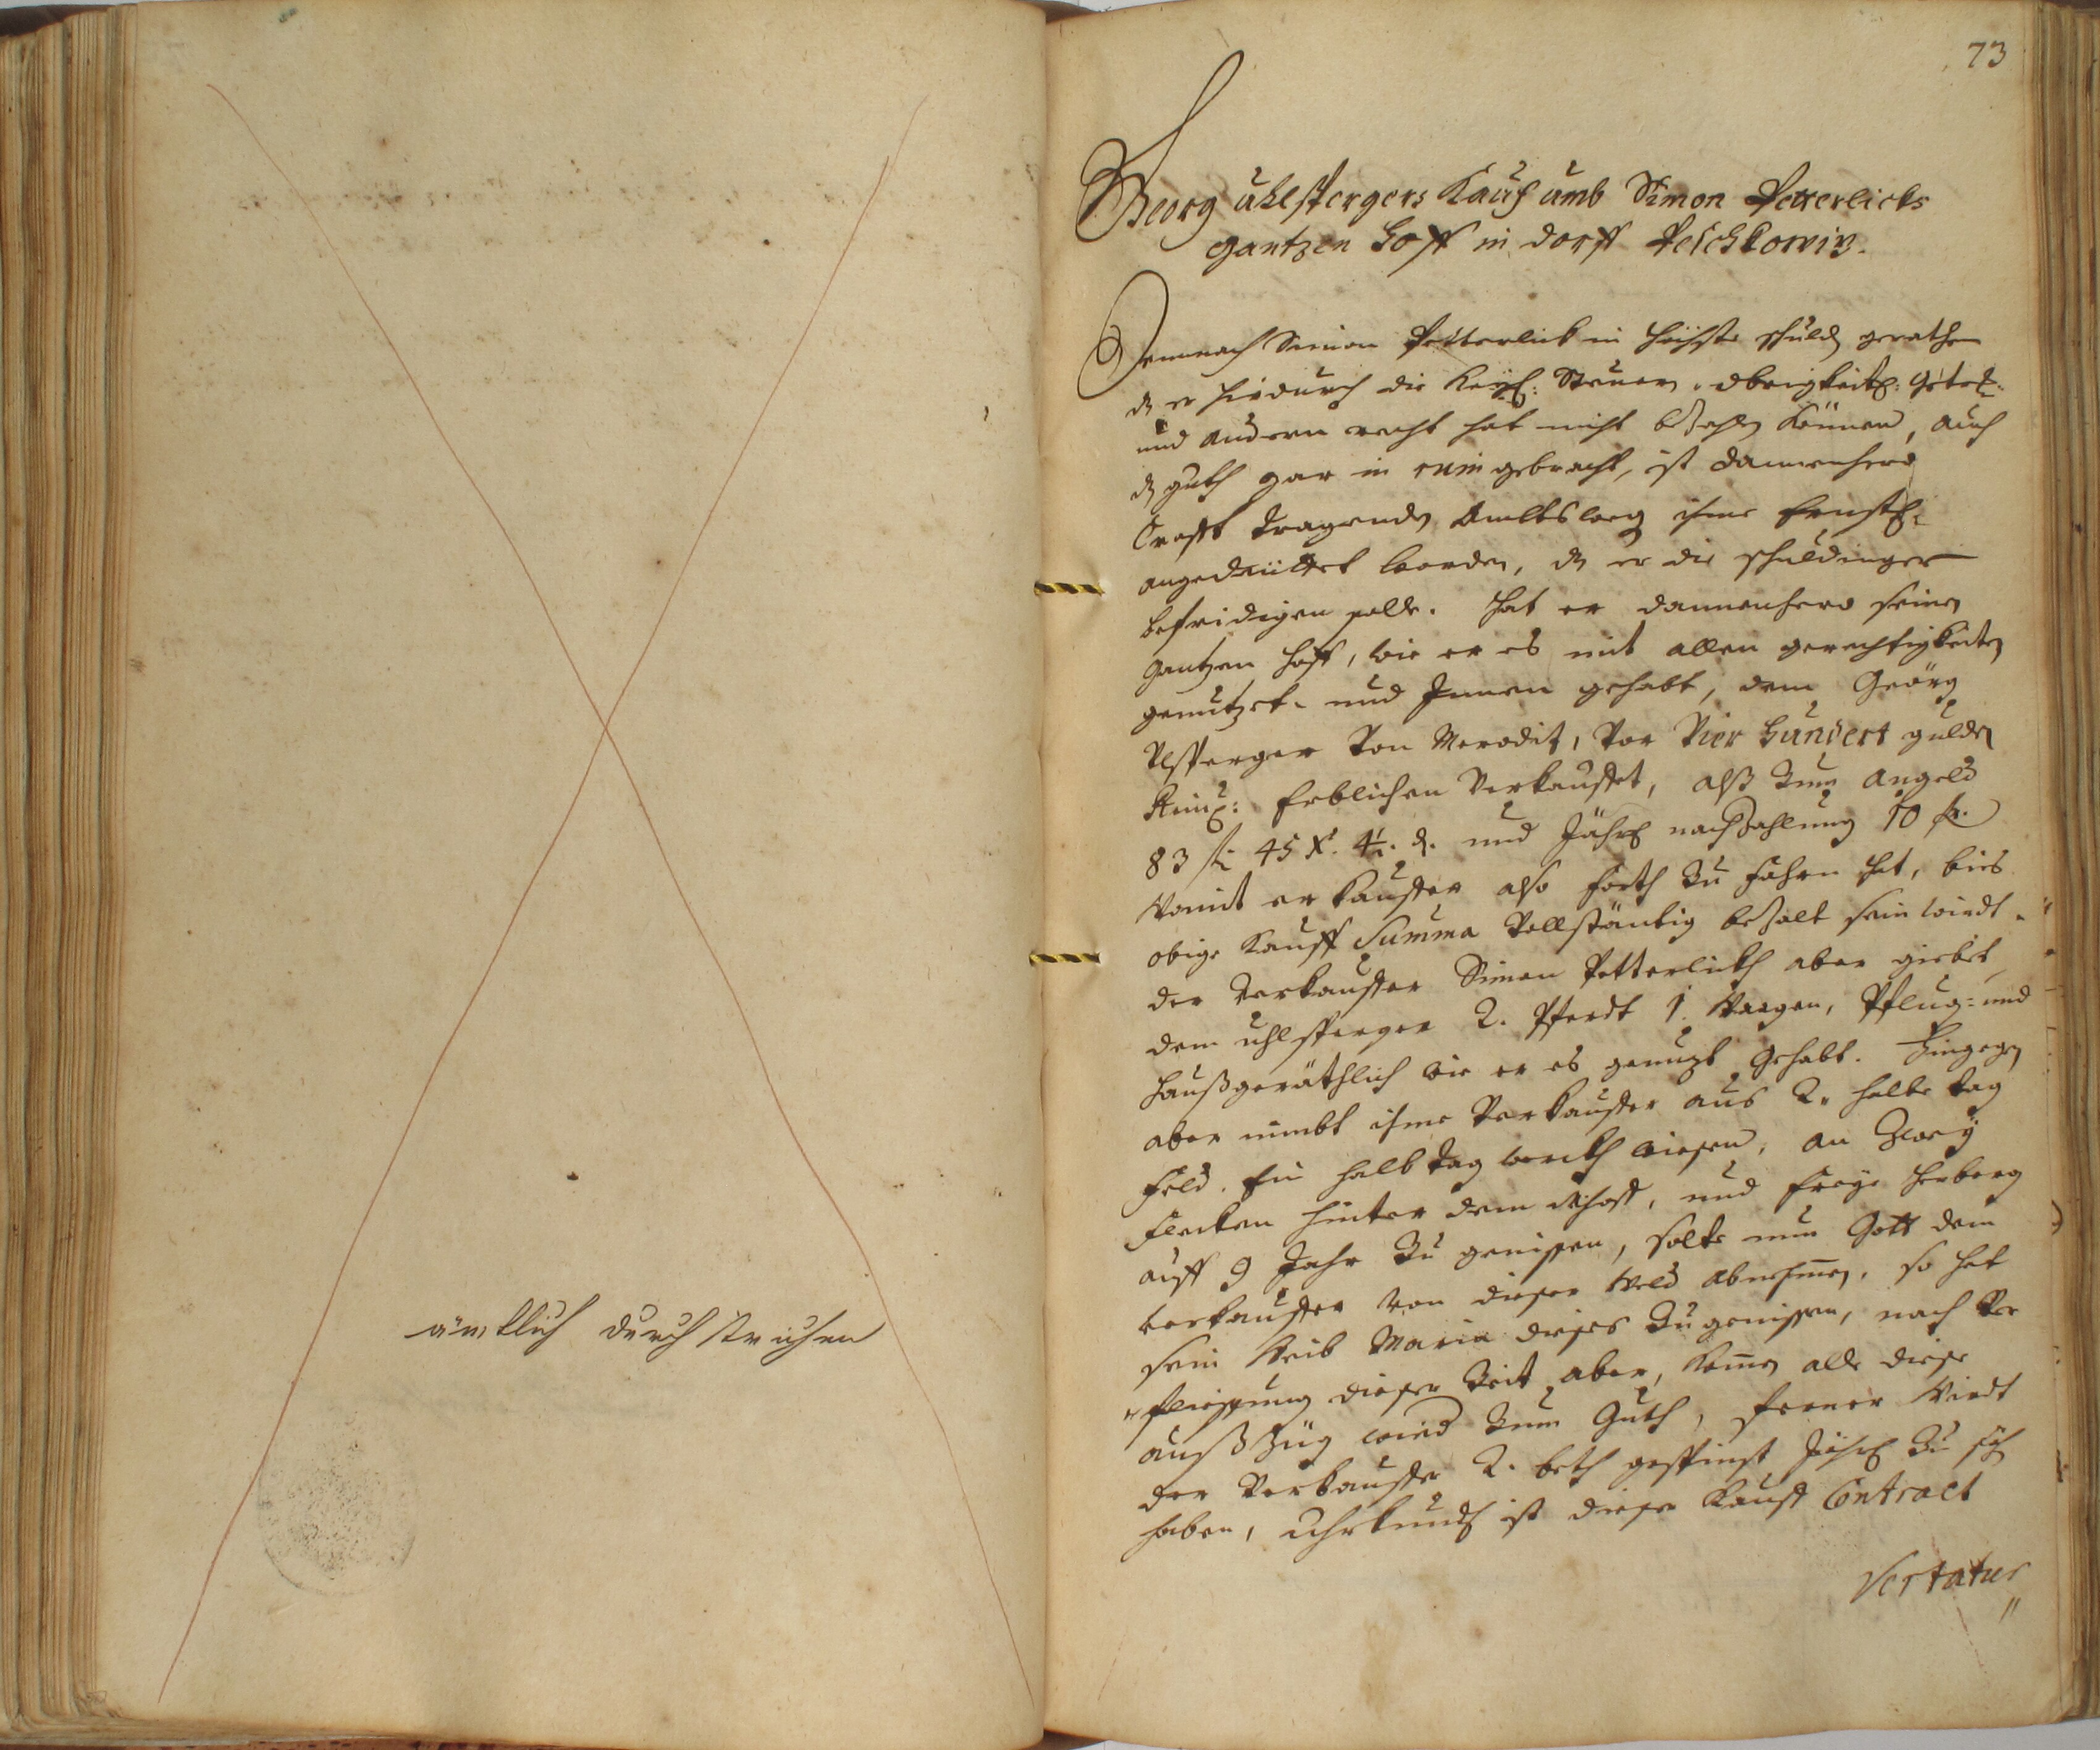 ämtlich durchstrichen
73
Georg Uhlspergers Kauf umb Simon Petterlicks
gantzen Hoff in dorff Peschkowiz.
Demnach Simon Petterlick in höchste schuld gerathen
dz er hirdurch die Keÿl: Steuer, obrigkeitl:
und andern recht hat nicht bezahlen können, auch
dz guth gar in ruin gebracht, ist dannenhero
Crafft tragenden Ambtsweg ihme Ernstl:
angedeüttet worden, dz er die schuldinger
befridigen solle. Hat er dannenhero seinen
gantzen Hoff, wie er es mit allen gerechtigkeiten
genützet- und Innen gehabt, dem Geörg
Ulsperger von Meroditz, vor Vier Hundert gulden
Reinl: Erblichen verkauffet, alß zum angeld
83 fl 45 X. 4½ d. und Jährl nachzahlung 10 fl.
Womit er kauffer also forth zu fahren hat, bies
obige Kauff Summa vollständig bezalt sein wirdt.
der verkauffer Simon Petterlickh aber giebet
dem Uhlsperger 2. Pferdt 1. Waagen, Pflug- und
haußgeräthlich wie er es genuzt gehabt. Hingegen
aber nimbt ihme Verkauffer aus 2. halbe tag
feld. Ein halb tag werckh wiesen, an Zweÿ
flecken hinter dem Mhoff, und freÿe Herberg
auff 9 Jahr zu genissen, solte nun Gott dem
verkauffer von dieser Weld abnehmen, so hat
sein Weib Maria dieses zu genissen, nach ver
"fliessung dieser Zeit aber, komen alle diese
außzüg wird zum Guth, ferner Wirdt
der Verkauffer 2. beth gespinst Jährl zu sich
haben, Uhrkundl ist dieser Kauff Contract
Vertatur